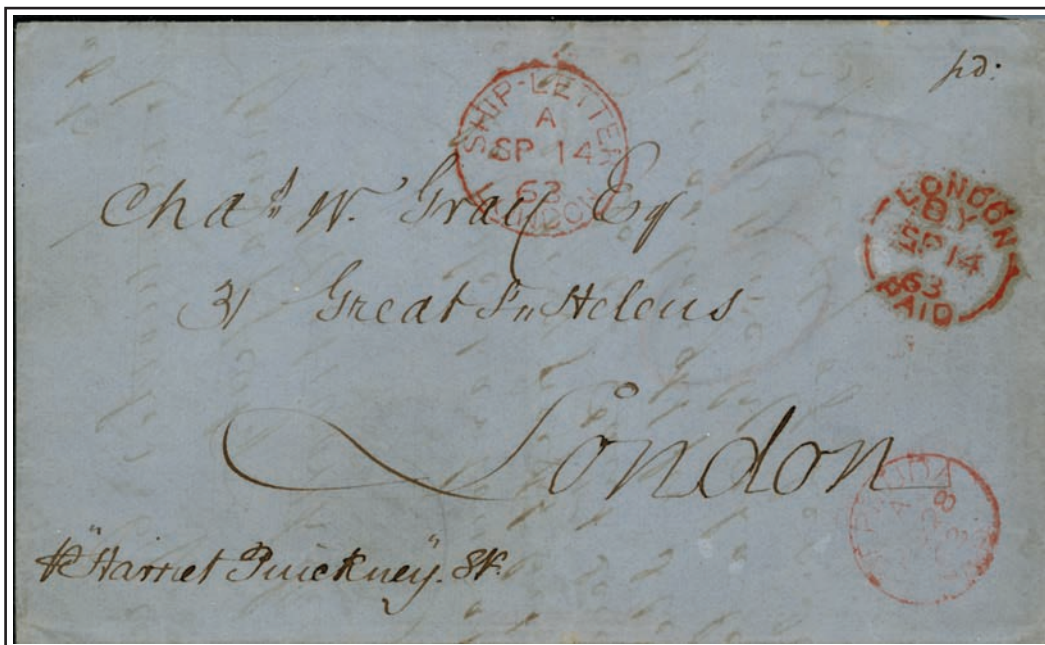 pd.
SHIP-LETTER
A
SP 14
63
LONDON
LONDON
SP 14
63
PAID
Chas W. Gray Esq
31 Great St Helens
London
8
A
p "Harriet Pinckney" Str.